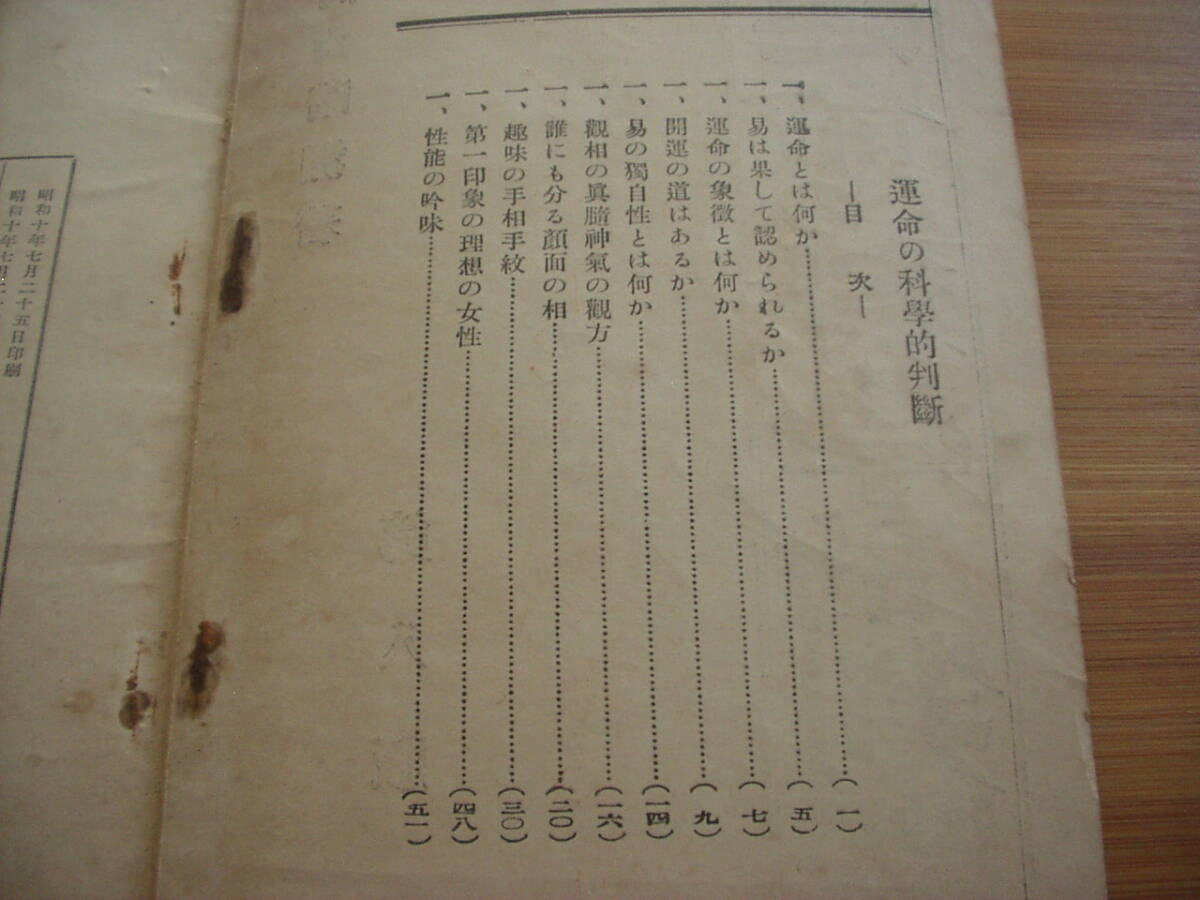 運命の科學的判斷
―目 次―
一、運命とは何か……(一)
一、易は果して認められるか……(五)
一、運命の象徴とは何か……(七)
一、開運の道はあるか……(九)
一、易の獨自性とは何か……(一四)
一、觀相の眞髓神氣の觀方……(一六)
一、誰にも分る顏面の相……(二〇)
一、趣味の手相手紋……(三〇)
一、第一印象の理想の女性……(四八)
一、性能の吟味……(五一)
昭和十年七月二十五日印刷
昭和十年七月二十